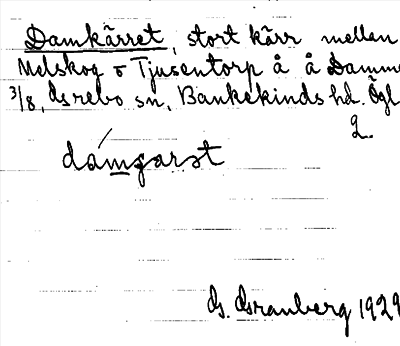 Damkärret, stort kärr mellan
Melskog o Tjusentorp å å Damm
3/8, Grebo sn, Bankekinds hd. Ögl
2.
damgarst
G. Granberg 1929